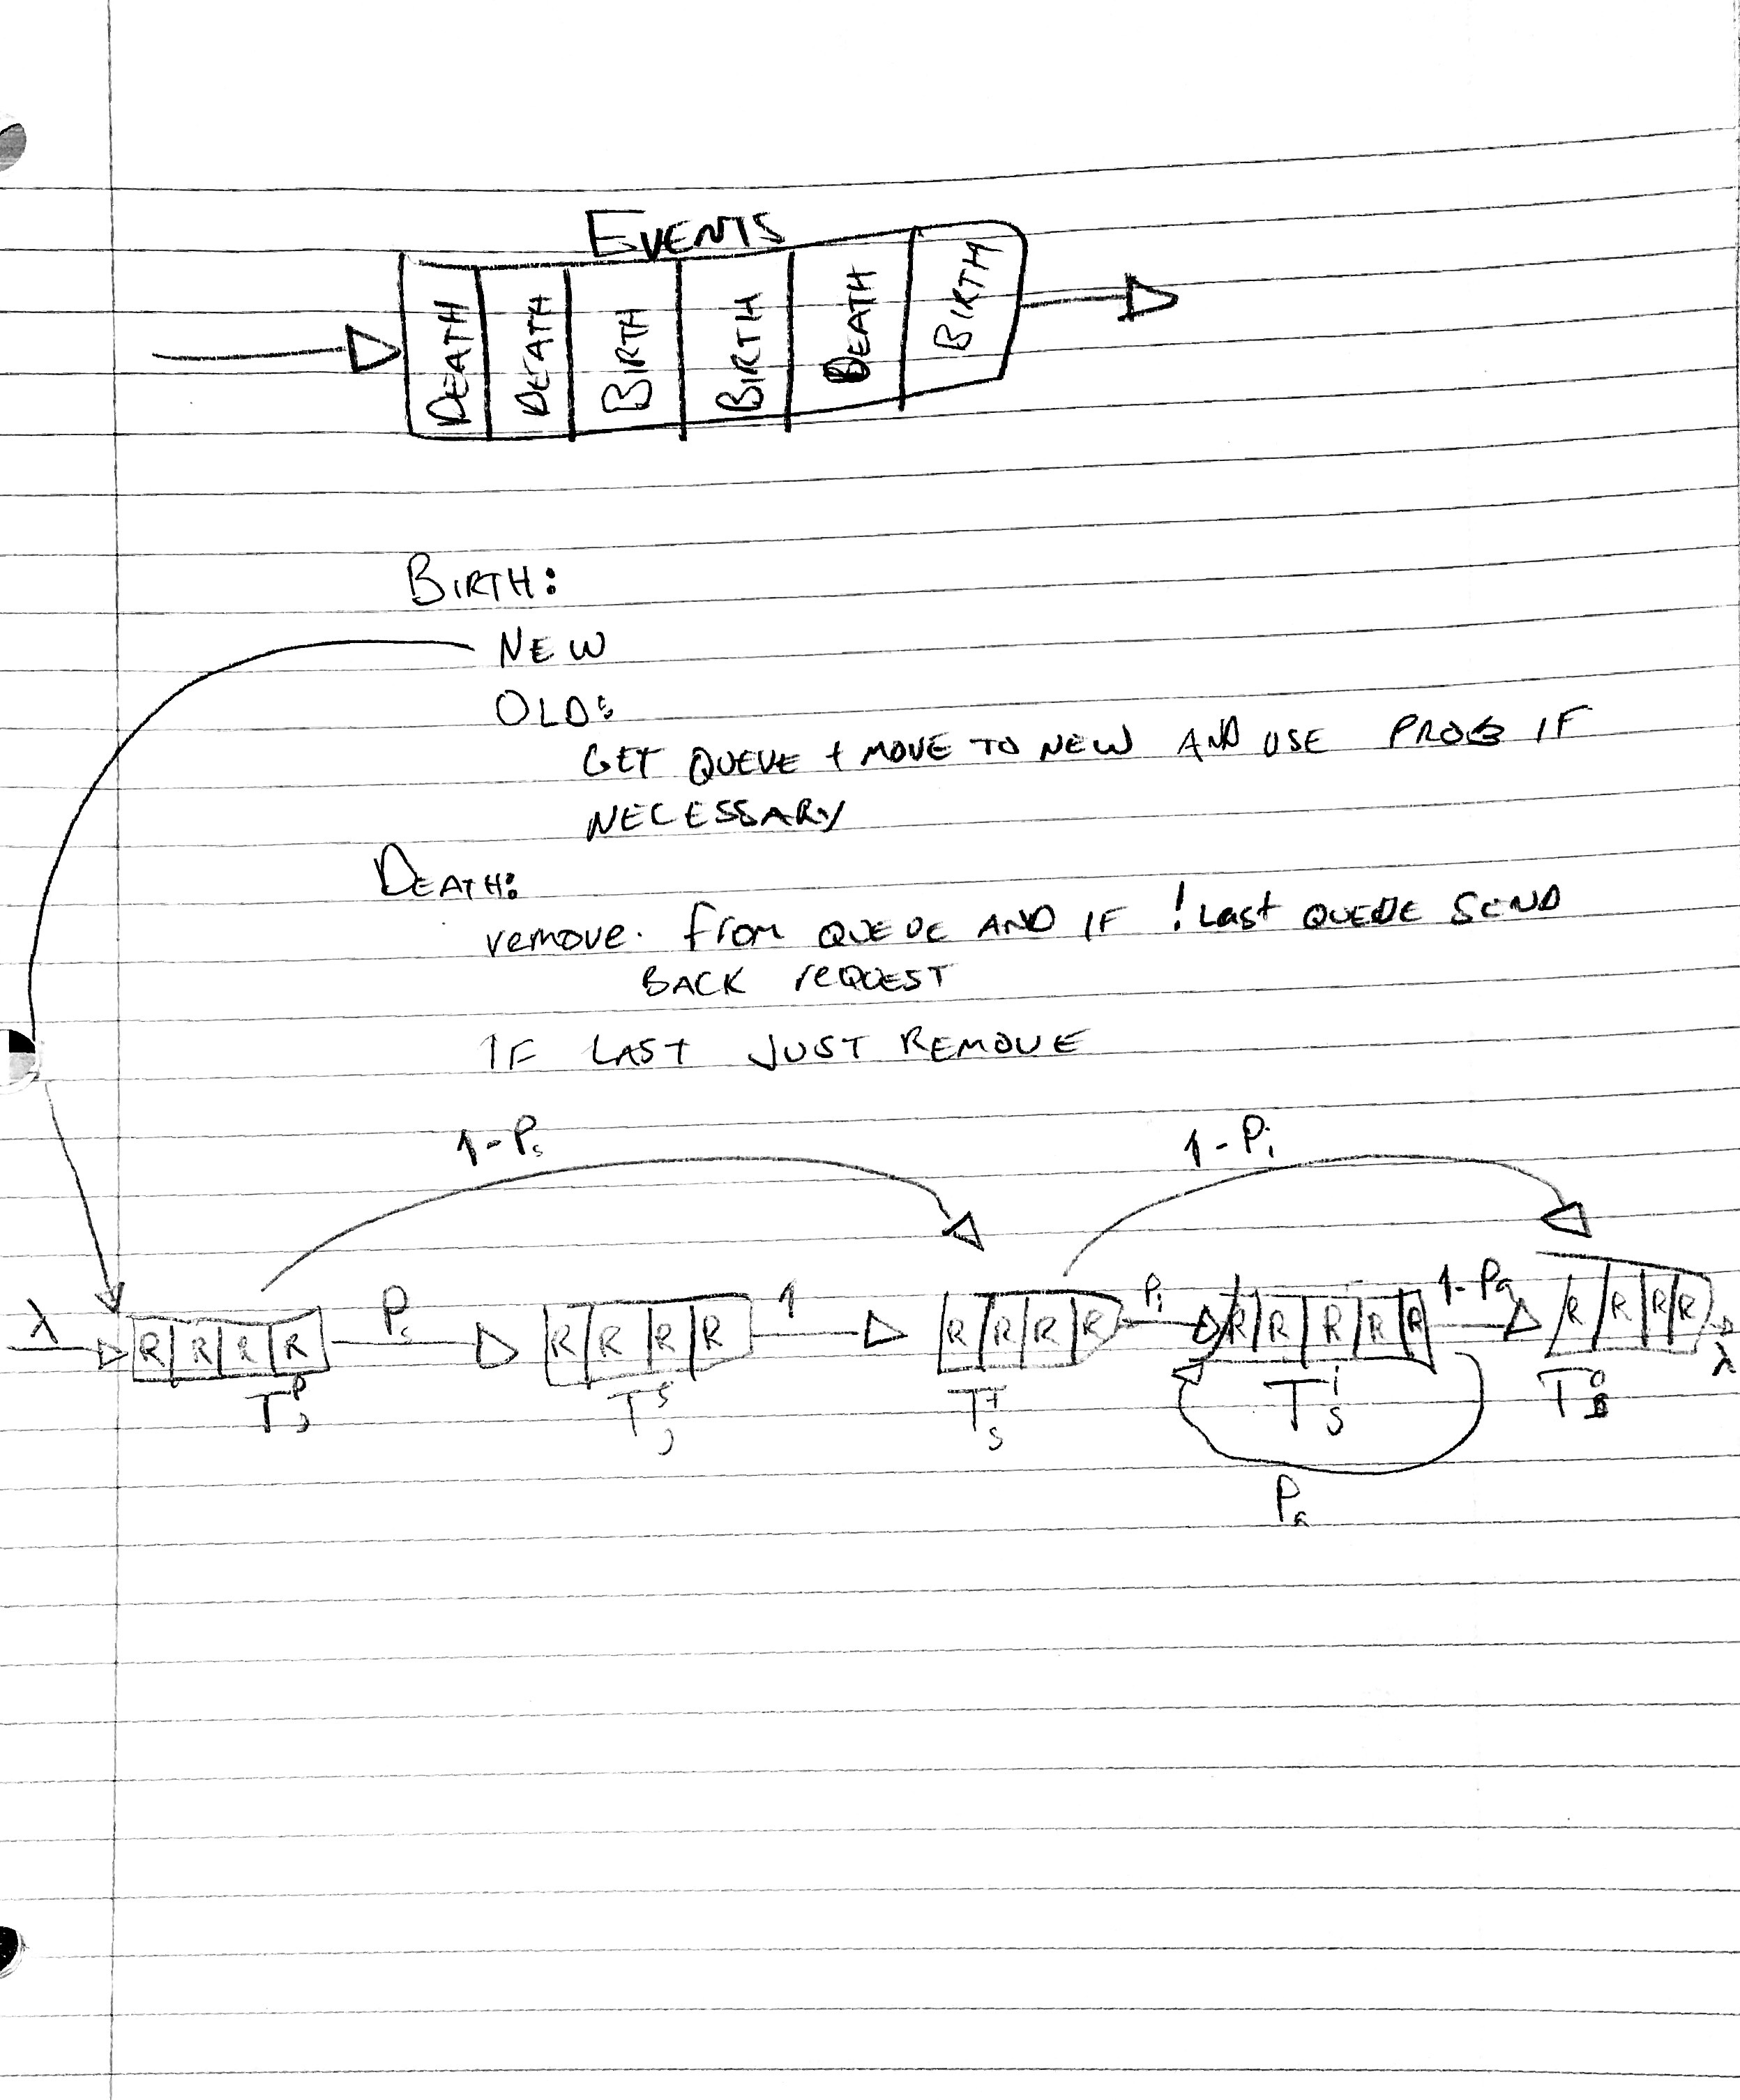 EVENTS
DEATH DEATH BIRTH BIRTH DEATH BIRTH
BIRTH:
NEW
OLD:
GET QUEUE + MOVE TO NEW AND USE PROB IF
NECESSARY
DEATH:
remove. from QUEUE AND IF !Last QUEUE SEND
BACK reQUEST
IF LAST JUST REMOVE
1-Ps 1-Pi
λ R R R R Ps R R R R 1 R R R R Pi R R R R R 1-Pa R R R R λ
Ts
Pa